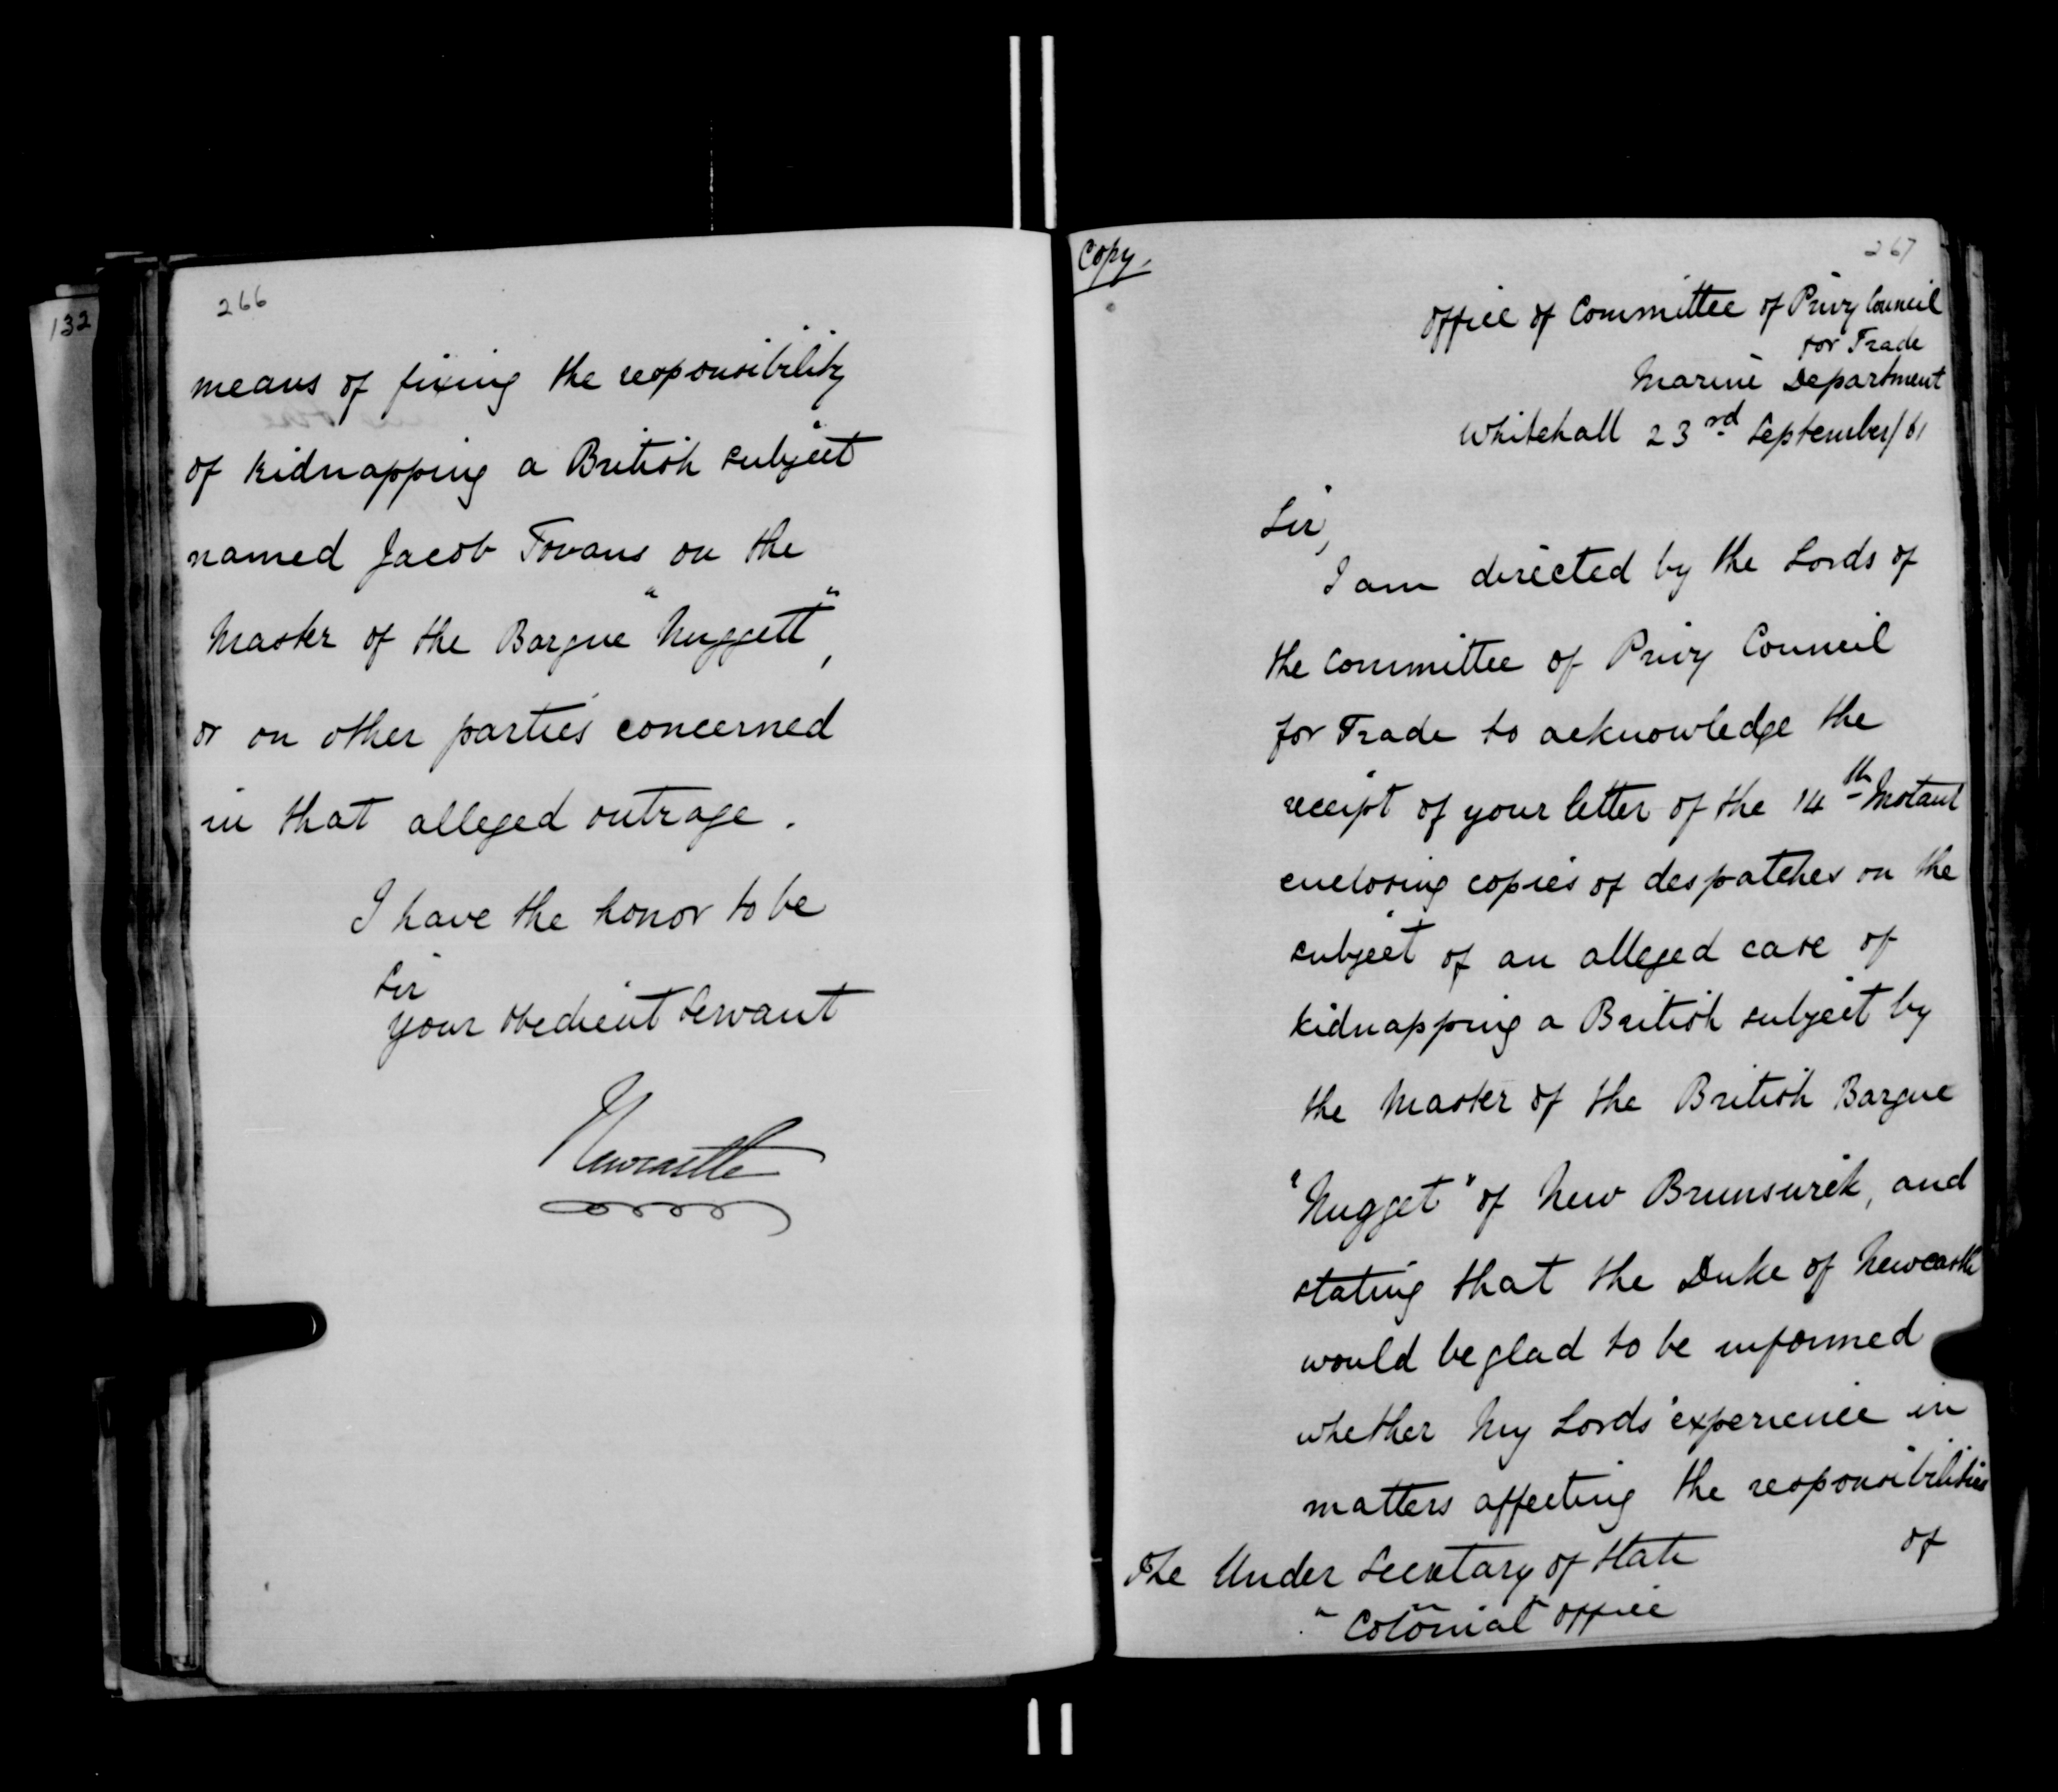 132
266
means of fixing the responsibility
of kidnapping a British subject
named Jacob Tovans on the
Master of the Barque "Nuggett",
or on other parties concerned
in that alleged outrage.
I have the honor to be
Sir
your obedient Servant
Newcastle
Copy.
267
Office of Committee of Privy Council
for Trade
Marine Department
Whitehall 23rd September/61
Sir,
I am directed by the Lords of
the Committee of Privy Council
for Trade to acknowledge the
receipt of your letter of the 14th Instant
enclosing copies of despatches on the
subject of an alleged case of
kidnapping a British subject by
the Master of the British Barque
"Nugget" of New Brunswick, and
stating that the Duke of Newcastle
would be glad to be informed
whether My Lords' experience in
matters affecting the responsibilities
of
The Under Secretary of State
" Colonial Office